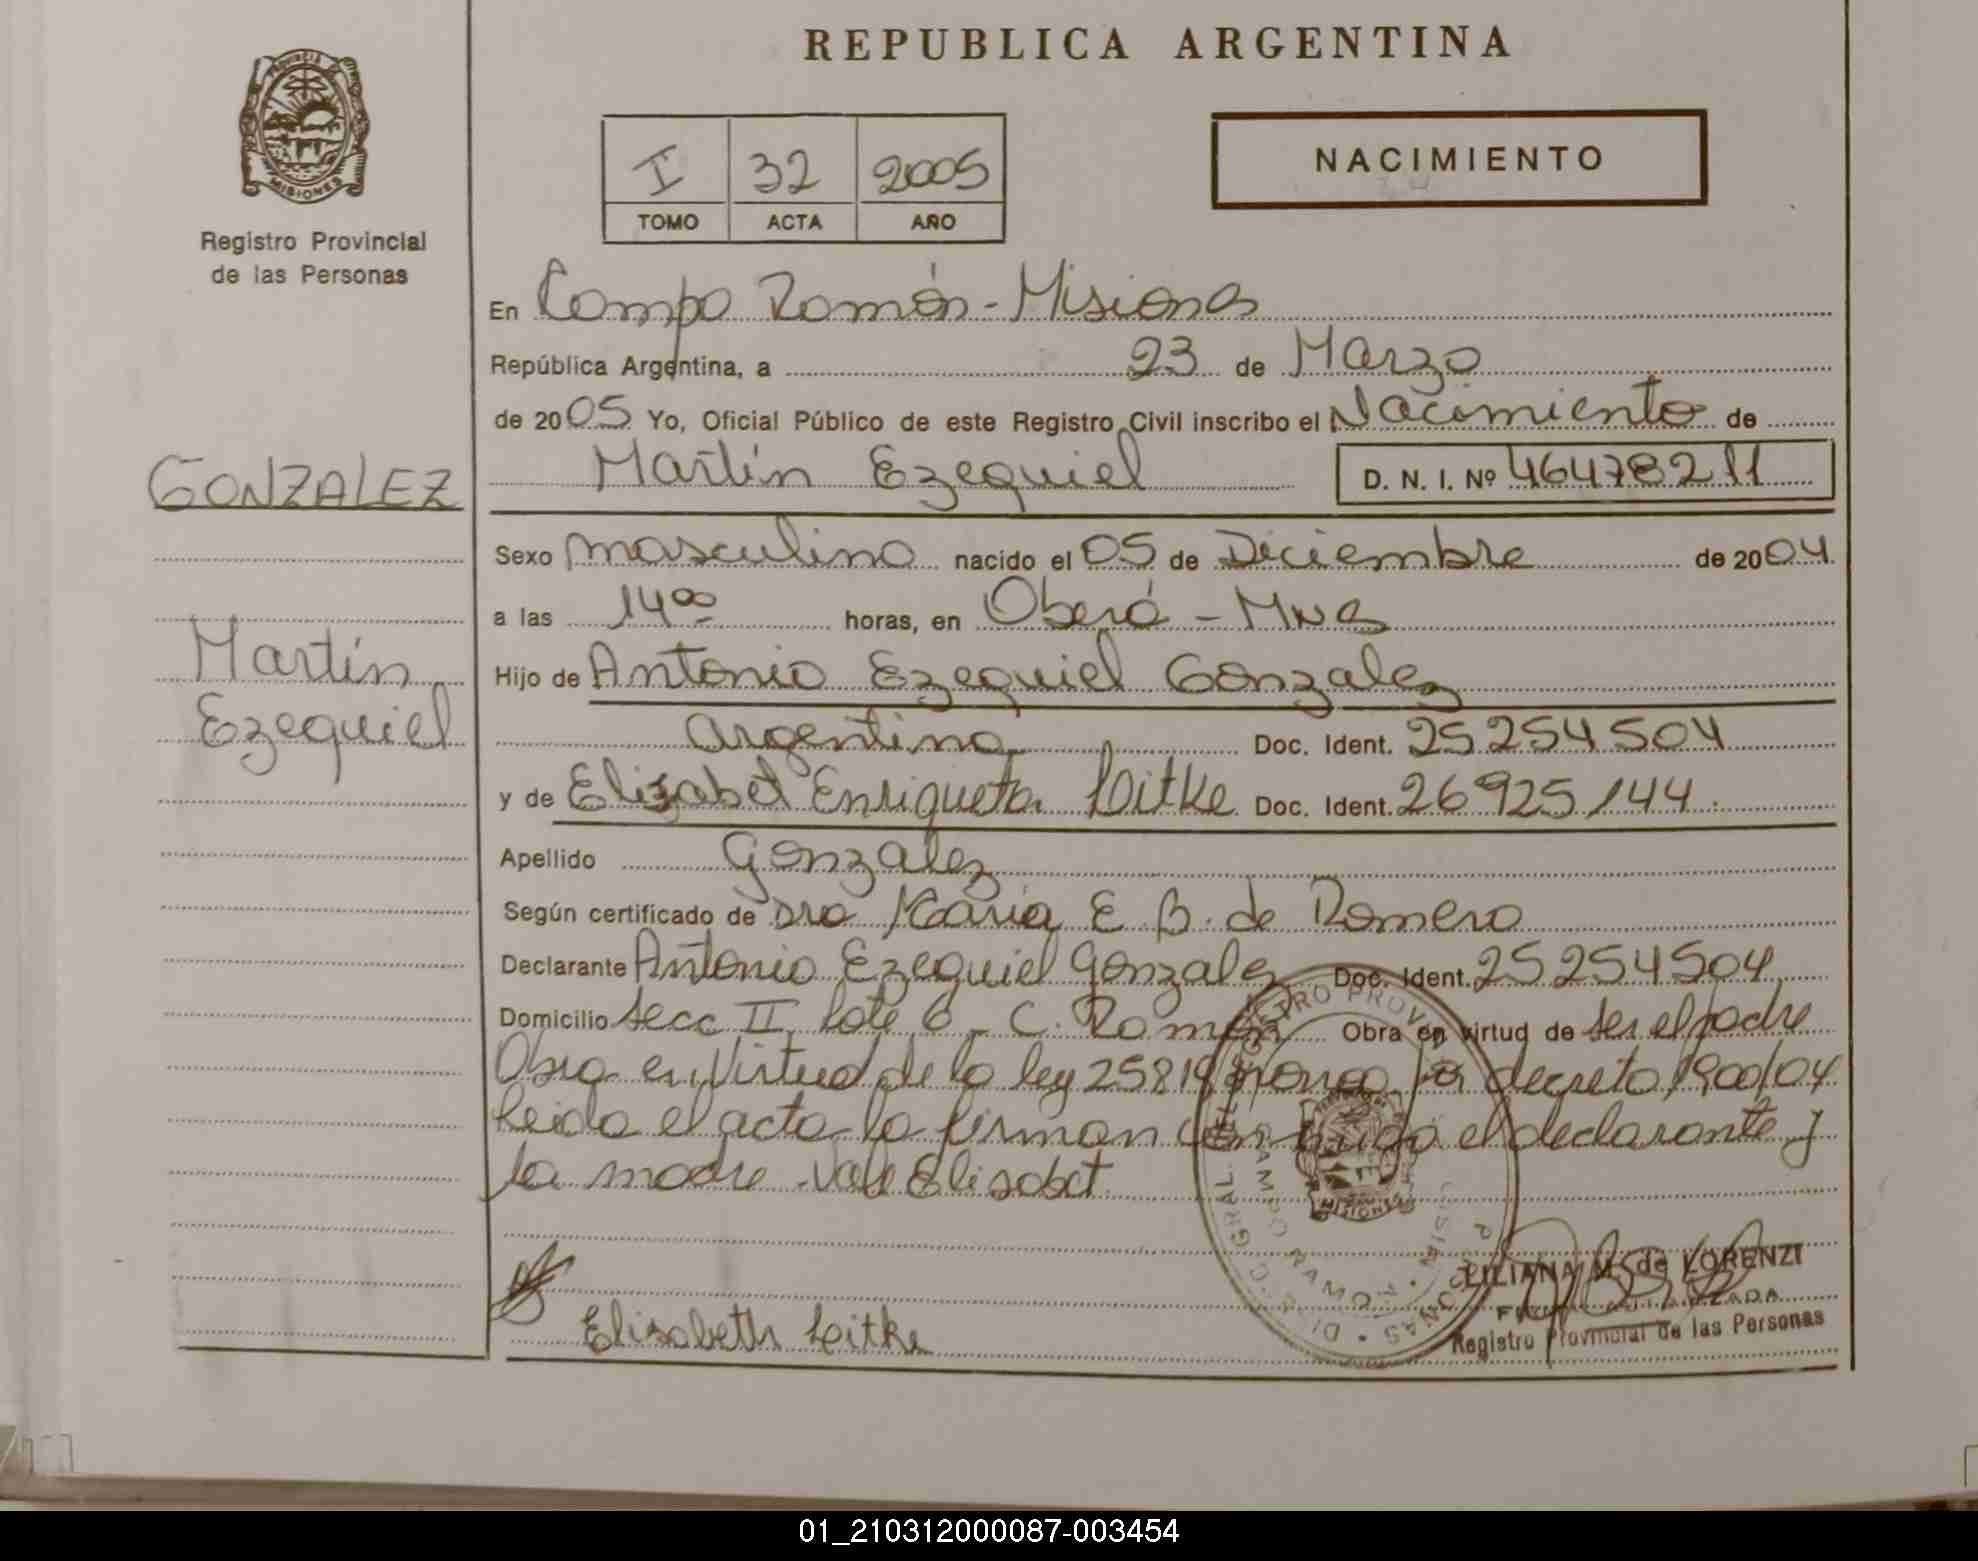 REPUBLICA ARGENTINA
PROVINCIA DE
MISIONES
Registro Provincial
de las Personas
I 32 2005
TOMO ACTA AÑO
NACIMIENTO
En Campo Ramón - Misiones
República Argentina, a 23 de Marzo
de 2005 Yo, Oficial Público de este Registro Civil inscribo el Nacimiento de
GONZALEZ
Martín Ezequiel D. N. I. Nº 46478211
Sexo masculino nacido el 05 de Diciembre de 2004
a las 14 00 horas, en Oberá - Mnes
Martín
Ezequiel
Hijo de Antonio Ezequiel Gonzalez
Argentino Doc. Ident. 25254504
y de Elizabet Enriqueta Litke Doc. Ident. 26925144.
Apellido Gonzalez
Según certificado de Dra Maria E B. de Romero
Declarante Antonio Ezequiel Gonzalez Doc. Ident. 25254504
Domicilio Secc II Lote 6 - C. Ramón Obra en virtud de ser el padre
Obra en Virtud de la ley 25819 por decreto 1900/04
Leida el acta la firman el declarante y
la madre. Vale Elisabet
Elisabeth Litke
LILIANA M. de LORENZI
Registro Provincial de las Personas
01_210312000087-003454